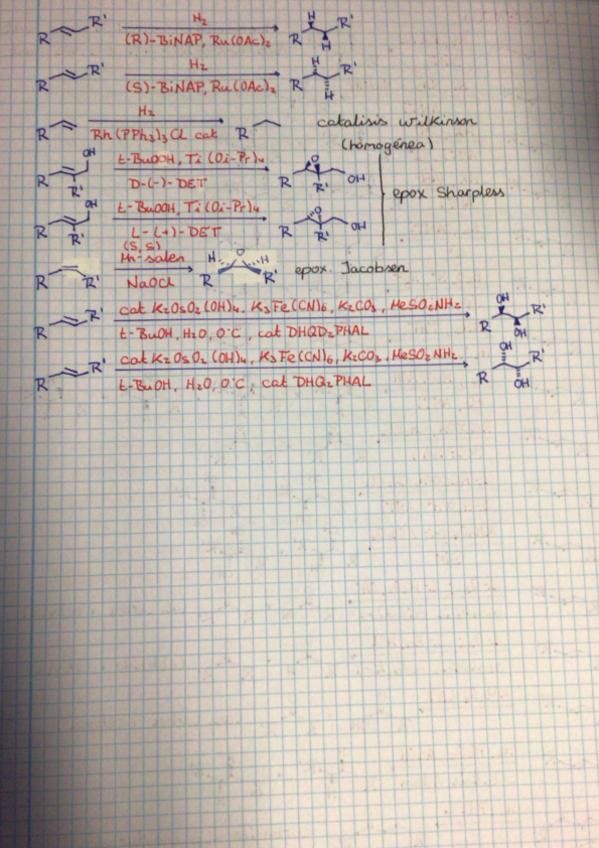 R R' H₂ (R)-BiNAP, Ru(OAc)₂ R H H R'
R R' H₂ (S)-BiNAP, Ru(OAc)₂ R H H R'
R H₂ Rh(PPh₃)₃Cl cat R catalisis wilkinson
(homogénea)
R R' OH t-BuOOH, Ti(Oi-Pr)₄ D-(-)-DET R O R' OH
epox Sharpless
R R' OH t-BuOOH, Ti(Oi-Pr)₄ L-(+)-DET R O R' OH
R R' (S,S) Mn-salen NaOCl H O H R R' epox. Jacobsen
R R' cat K₂OsO₂(OH)₄, K₃Fe(CN)₆, K₂CO₃, MeSO₂NH₂ R OH OH R'
t-BuOH, H₂O, 0°C, cat DHQD₂PHAL
R R' cat K₂OsO₂(OH)₄, K₃Fe(CN)₆, K₂CO₃, MeSO₂NH₂ R OH OH R'
t-BuOH, H₂O, 0°C, cat DHQ₂PHAL